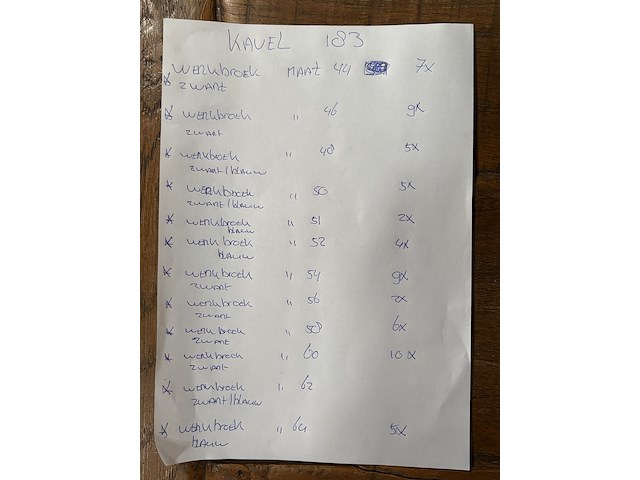 KAVEL 183
* WERKbROEK MAAT 44 7x
ZWART
* WERKbROEK " 46 9x
ZWART
* WERKbROEK " 48 5x
ZWART/blauw
* WERKbROEK " 50 5x
ZWART/blauw
* WERKbROEK " 51 2x
blauw
* WERKbROEK " 52 4x
blauw
* WERKbROEK " 54 9x
ZWART
* WERKbROEK " 56 2x
ZWART
* WERKbROEK " 58 6x
ZWART
* WERKbROEK " 60 10x
ZWART
* WERKbROEK " 62
ZWART/blauw
* WERKbROEK " 64 5x
blauw